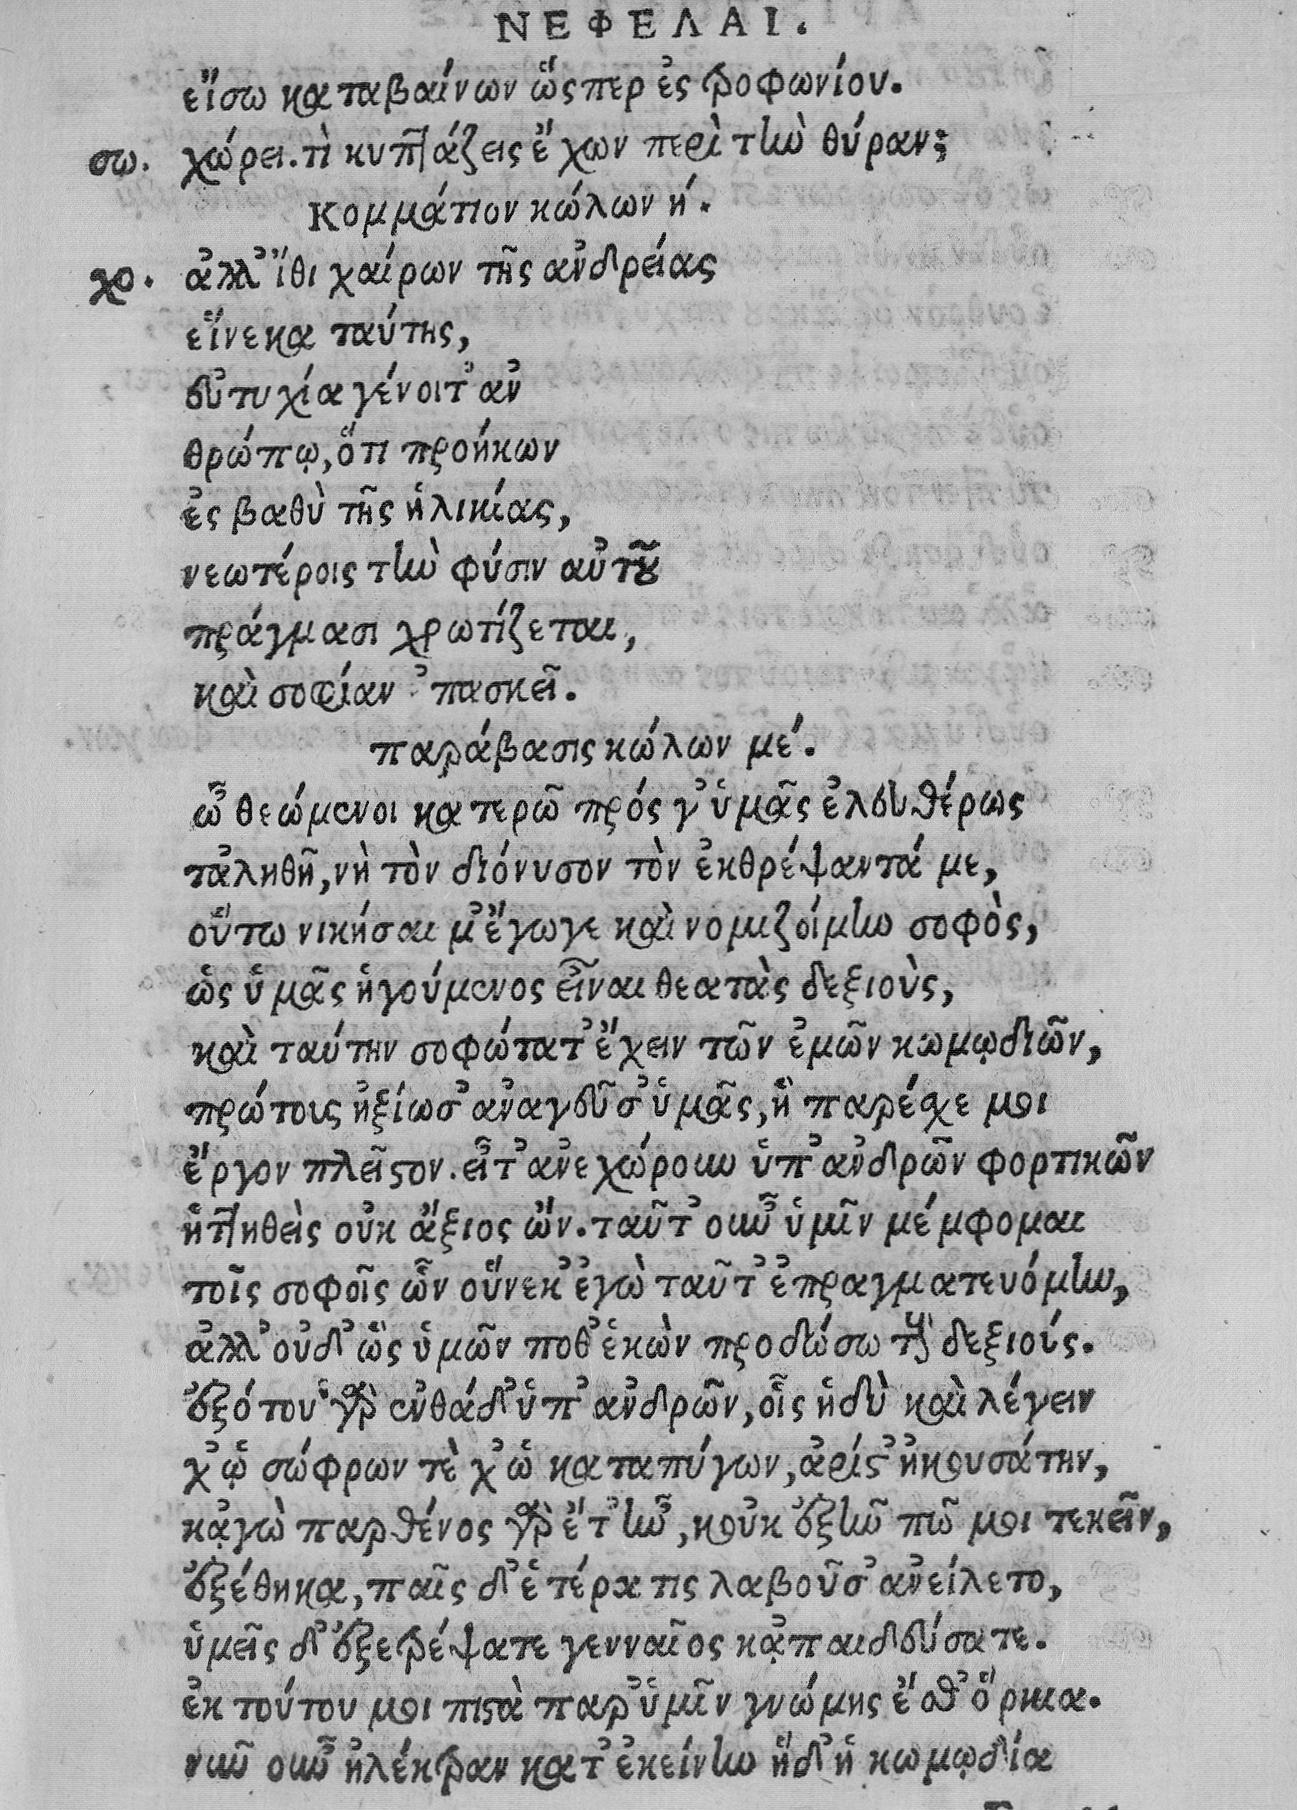 ΝΕΦΕΛΑΙ.
εἴσω καταβαίνων ὥςπερ ἐς τροφωνίου.
σω. χώρει. τὶ κυπτάζεις ἔχων περὶ τὴν θύραν;
Κομμάτιον κώλων ή.
χο. ἀλλ' ἴθι χαίρων τῆς ἀνδρείας
εἵνεκα ταύτης,
εὐτυχία γένοιτ' ἀν
θρώπῳ, ὅτι προήκων
ἐς βαθὺ τῆς ἡλικίας,
νεωτέροις τὴν φύσιν αὐτοῦ
πράγμασι χρωτίζεται,
καὶ σοφίαν 'πασκεῖ.
παράβασις κώλων μέ.
ὦ θεώμενοι κατερῶ πρός γ' ὑμᾶς ἐλευθέρως
τἀληθῆ, νὴ τὸν διόνυσον τὸν ἐκθρέψαντά με,
οὕτω νικήσαι μ' ἔγωγε καὶ νομιζοίμην σοφὸς,
ὡς ὑμᾶς ἡγούμενος εἶναι θεατὰς δεξιοὺς,
καὶ ταύτην σοφώτατ' ἔχειν τῶν ἐμῶν κωμῳδιῶν,
πρώτοις ἠξίωσ' ἀναγεῦσ' ὑμᾶς, ἣ παρέχε μοι
ἔργον πλεῖστον. εἶτ' ἀνεχώρουν ὑπ' ἀνδρῶν φορτικῶν
ἡττηθεὶς οὐκ ἄξιος ὤν. ταῦτ' οὖν ὑμῖν μέμφομαι
τοῖς σοφοῖς ὧν οὕνεκ' ἐγὼ ταῦτ' ἐπραγματευόμην,
ἀλλ' οὐδ' ὣς ὑμῶν ποθ' ἑκὼν προδώσω τοὺς δεξιούς.
ἐξότου γὰρ ἐνθάδ' ὑπ' ἀνδρῶν, οἷς ἡδὺ καὶ λέγειν
χ' ᾧ σώφρων τὲ χ' ὡ καταπύγων, ἀρίστ' ἠκουσάτην,
κᾀγὼ παρθένος γὰρ ἔτ' ἦν, κοὐκ ἐξῆν πῶ μοι τεκεῖν,
ἐξέθηκα, παῖς δ' ἑτέρα τις λαβοῦσ' ἀνείλετο,
ὑμεῖς δ' ἐξετρέψατε γενναῖος κᾀπαιδεύσατε.
ἐκ τούτου μοι πιστὰ παρ' ὑμῖν γνώμης ἔσθ' ὅρκια.
νῦν οὖν ἠλέκτραν κατ' ἐκείνην ἥδ' ἡ κωμῳδία